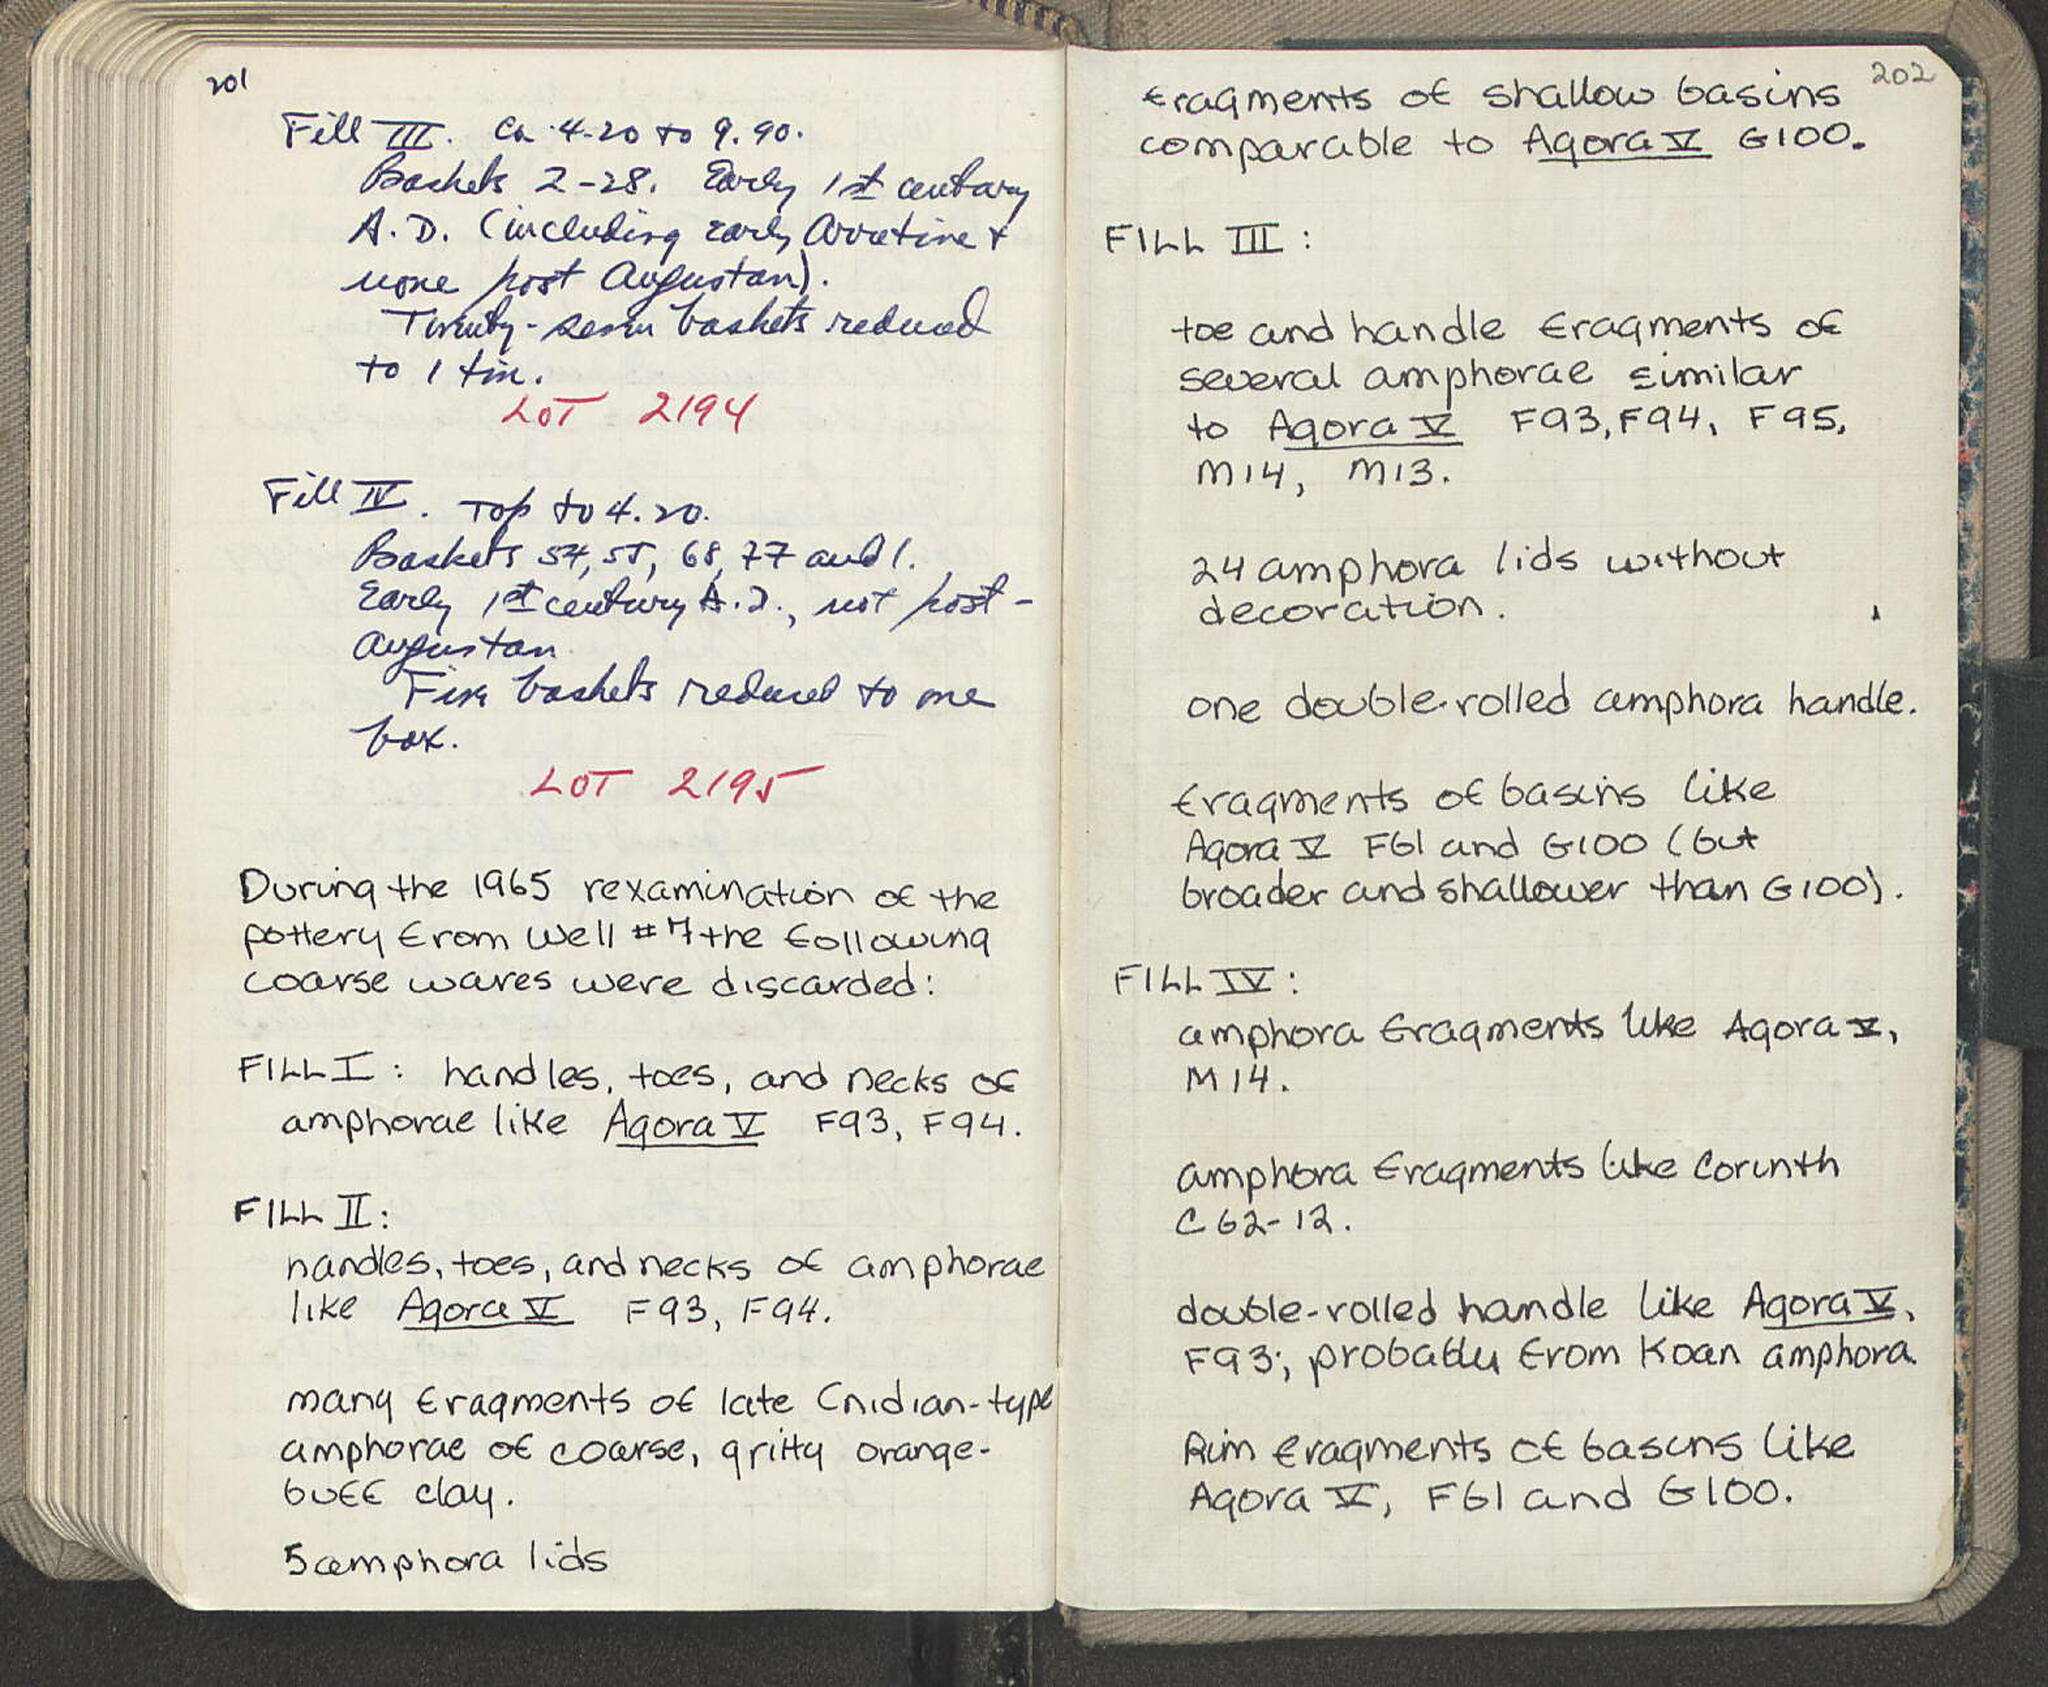 201
Fill III. Ca. 4.20 to 9.90.
Baskets 2-28. Early 1st century
A.D. (including early Arretine +
none post Augustan).
Twenty-seven baskets reduced
to 1 tin.
LOT 2194
Fill IV. Top to 4.20.
Baskets 54, 55, 68, 77 and 1.
Early 1st century A.D., not post-
Augustan
Five baskets reduced to one
box.
LOT 2195
During the 1965 rexamination of the
pottery from Well #7 the following
coarse wares were discarded:
FILL I: handles, toes, and necks of
amphorae like Agora V F93, F94.
FILL II:
handles, toes, and necks of amphorae
like Agora V F93, F94.
many fragments of late Cnidian-type
amphorae of coarse, gritty orange-
buff clay.
5 amphora lids
202
fragments of shallow basins
comparable to Agora V G100.
FILL III:
toe and handle fragments of
several amphorae similar
to Agora V F93, F94, F95,
M14, M13.
24 amphora lids without
decoration.
one double-rolled amphora handle.
fragments of basins like
Agora V F61 and G100 (but
broader and shallower than G100).
FILL IV:
amphora fragments like Agora V,
M14.
amphora fragments like Corinth
C 62-12.
double-rolled handle like Agora V,
F93; probably from Koan amphora.
Rim fragments of basins like
Agora V, F61 and G100.